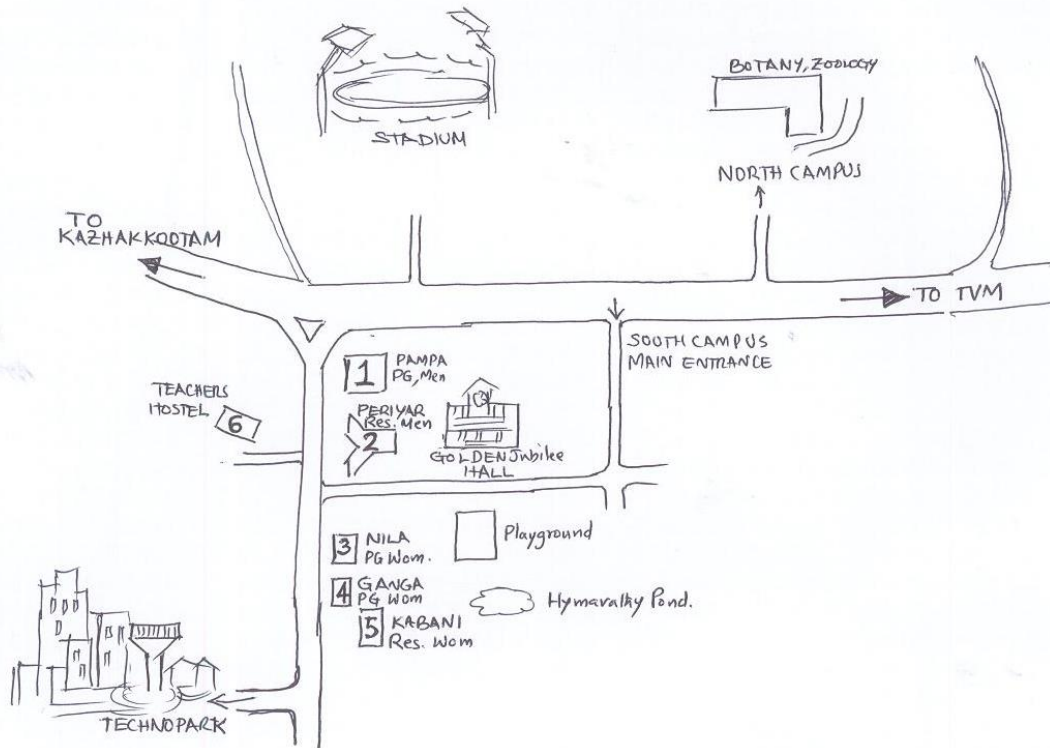 STADIUM
BOTANY, ZOOLOGY
NORTH CAMPUS
TO
KAZHAKKOOTAM
TO TVM
SOUTH CAMPUS
MAIN ENTRANCE
1 PAMPA
PG, Men
TEACHERS
HOSTEL
6
PERIYAR
Res. Men
2
GOLDEN Jubilee
HALL
3 NILA
PG Wom.
Playground
4 GANGA
PG Wom
Hymavathy Pond.
5 KABANI
Res. Wom
TECHNOPARK